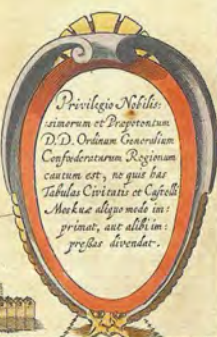 Privilegio Nobilis:
simorum et Præpotentum
D.D. Ordinum Generalium
Confœderatarum Regionum
cautum est, ne quis has
Tabulas Civitatis et Castelli
Moskuæ aliquo modo im:
primat, aut alibi im:
preſsas divendat.